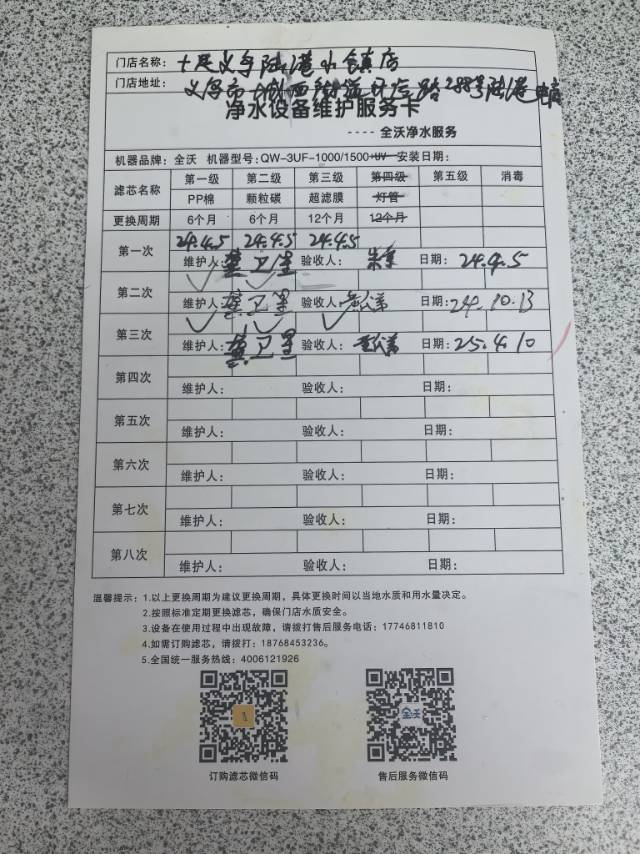 门店名称：十足义乌陆港小镇店
门店地址：义乌市 街道 路288号陆港电商
净水设备维护服务卡
---- 全沃净水服务
机器品牌：全沃 机器型号：QW-3UF-1000/1500+UV 安装日期：
滤芯名称 第一级 第二级 第三级 第四级 第五级 消毒
PP棉 颗粒碳 超滤膜 灯管
更换周期 6个月 6个月 12个月 12个月
第一次 24.4.5 24.4.5 24.4.5
维护人： 卫星 验收人： 日期：24.4.5
第二次 ✓ ✓
维护人： 卫星 验收人： 日期：24.10.13
第三次 ✓ ✓ ✓
维护人： 卫星 验收人： 日期：25.4.10
第四次
维护人： 验收人： 日期：
第五次
维护人： 验收人： 日期：
第六次
维护人： 验收人： 日期：
第七次
维护人： 验收人： 日期：
第八次
维护人： 验收人： 日期：
温馨提示：1.以上更换周期为建议更换周期，具体更换时间以当地水质和用水量决定。
2.按照标准定期更换滤芯，确保门店水质安全。
3.设备在使用过程中出现故障，请拨打售后服务电话：17746811810
4.如需订购滤芯，请拨打：18768453236。
5.全国统一服务热线：4006121926
全沃
订购滤芯微信码 售后服务微信码